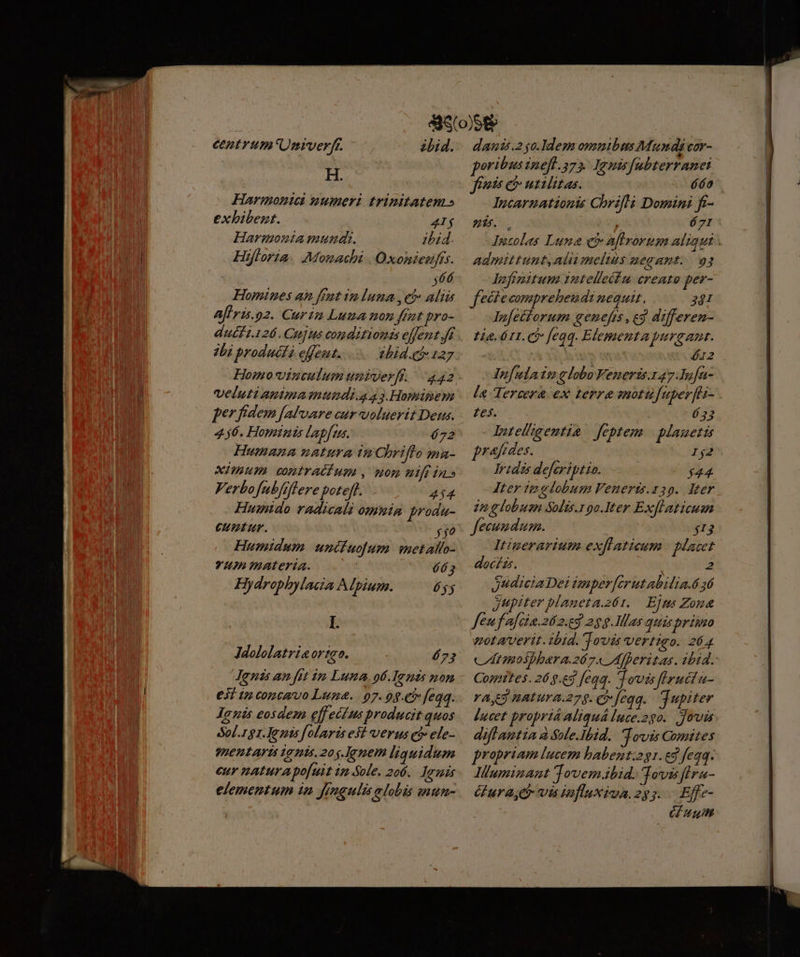 ❧(o)❧
centrum Universi. ibid.
H.
Harmonici numeri trinitatem
exhibent. 415
Harmonia mundi. ibid.
Historia Monachi Oxoniensis.
566
Homines an sint in luna, &amp; aliis
Astris. 92. Cur in Luna non sint pro-
ducti. 126. Cujus conditionis essent si
ibi producti essent. ibid. &amp; 127
Homo vinculum universi. 442
veluti anima mundi. 443. Hominem
per fidem salvare cur voluerit Deus.
456. Hominis lapsus. 672
Humana natura in Christo ma-
ximum contractum, non nisi in
Verbo subsistere potest. 454
Humido radicali omnia produ-
cuntur. 550
Humidum unctuosum metallo-
rum materia. 663
Hydrophylacia Alpium. 655
I.
Idololatriæ origo. 673
Ignis an sit in Luna. 96. Ignis non
est in concavo Lunæ. 97. 98. &amp; seqq.
Ignis eosdem effectus producit quos
Sol. 191. Ignis solaris est verus &amp; ele-
mentaris ignis. 205. Ignem liquidum
cur natura posuit in Sole. 206. Ignis
elementum in singulis globis mun-
danis. 250. Idem omnibus Mundi cor-
poribus inest. 373. Ignis subterranei
finis &amp; utilitas. 660
Incarnationis Christi Domini fi-
nis. 671
Incolas Lunæ &amp; astrorum aliqui
admittunt, alii melius negant. 93
Infinitum intellectu creato per-
fecte comprehendi nequit. 381
Insectorum genesis, &amp; differen-
tiæ. 611. &amp; seqq. Elementa purgant.
612
Insula in globo Veneris. 147. Insu-
læ Terceræ ex terræ motu superfli-
tes. 633
Intelligentiæ septem planetis
præsides. 152
Iridis descriptio. 544
Iter in globum Veneris. 139. Iter
in globum Solis. 190. Iter Exstaticum
secundum. 513
Itinerarium exstaticum placet
doctis. 2
Judicia Dei imperscrutabilia. 636
Jupiter planeta. 261. Ejus Zonæ
seu fasciæ. 262. &amp; 288. Illas quis primo
notaverit. ibid. Jovis vertigo. 264
Atmosphæra. 267. Asperitas. ibid.
Comites. 268. &amp; seqq. Jovis structu-
ra, &amp; natura. 278. &amp; seqq. Jupiter
lucet propriâ aliquâ luce. 290. Jovis
distantia à Sole. Ibid. Jovis Comites
propriam lucem habent. 291. &amp; seqq.
Illuminant Jovem. ibid. Jovis stru-
ctura, &amp; vis influxiva. 293. Effe-
ctuum